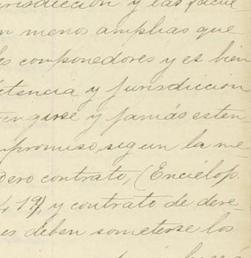 urisdicción y las facul
n menos amplias que
les componedores y es bien
etencia y jurisdicción
y jamás esten
mpromiso, segun la me
dero contrato, (Enciclop.
419, y contrato de dere
es deben someterse los